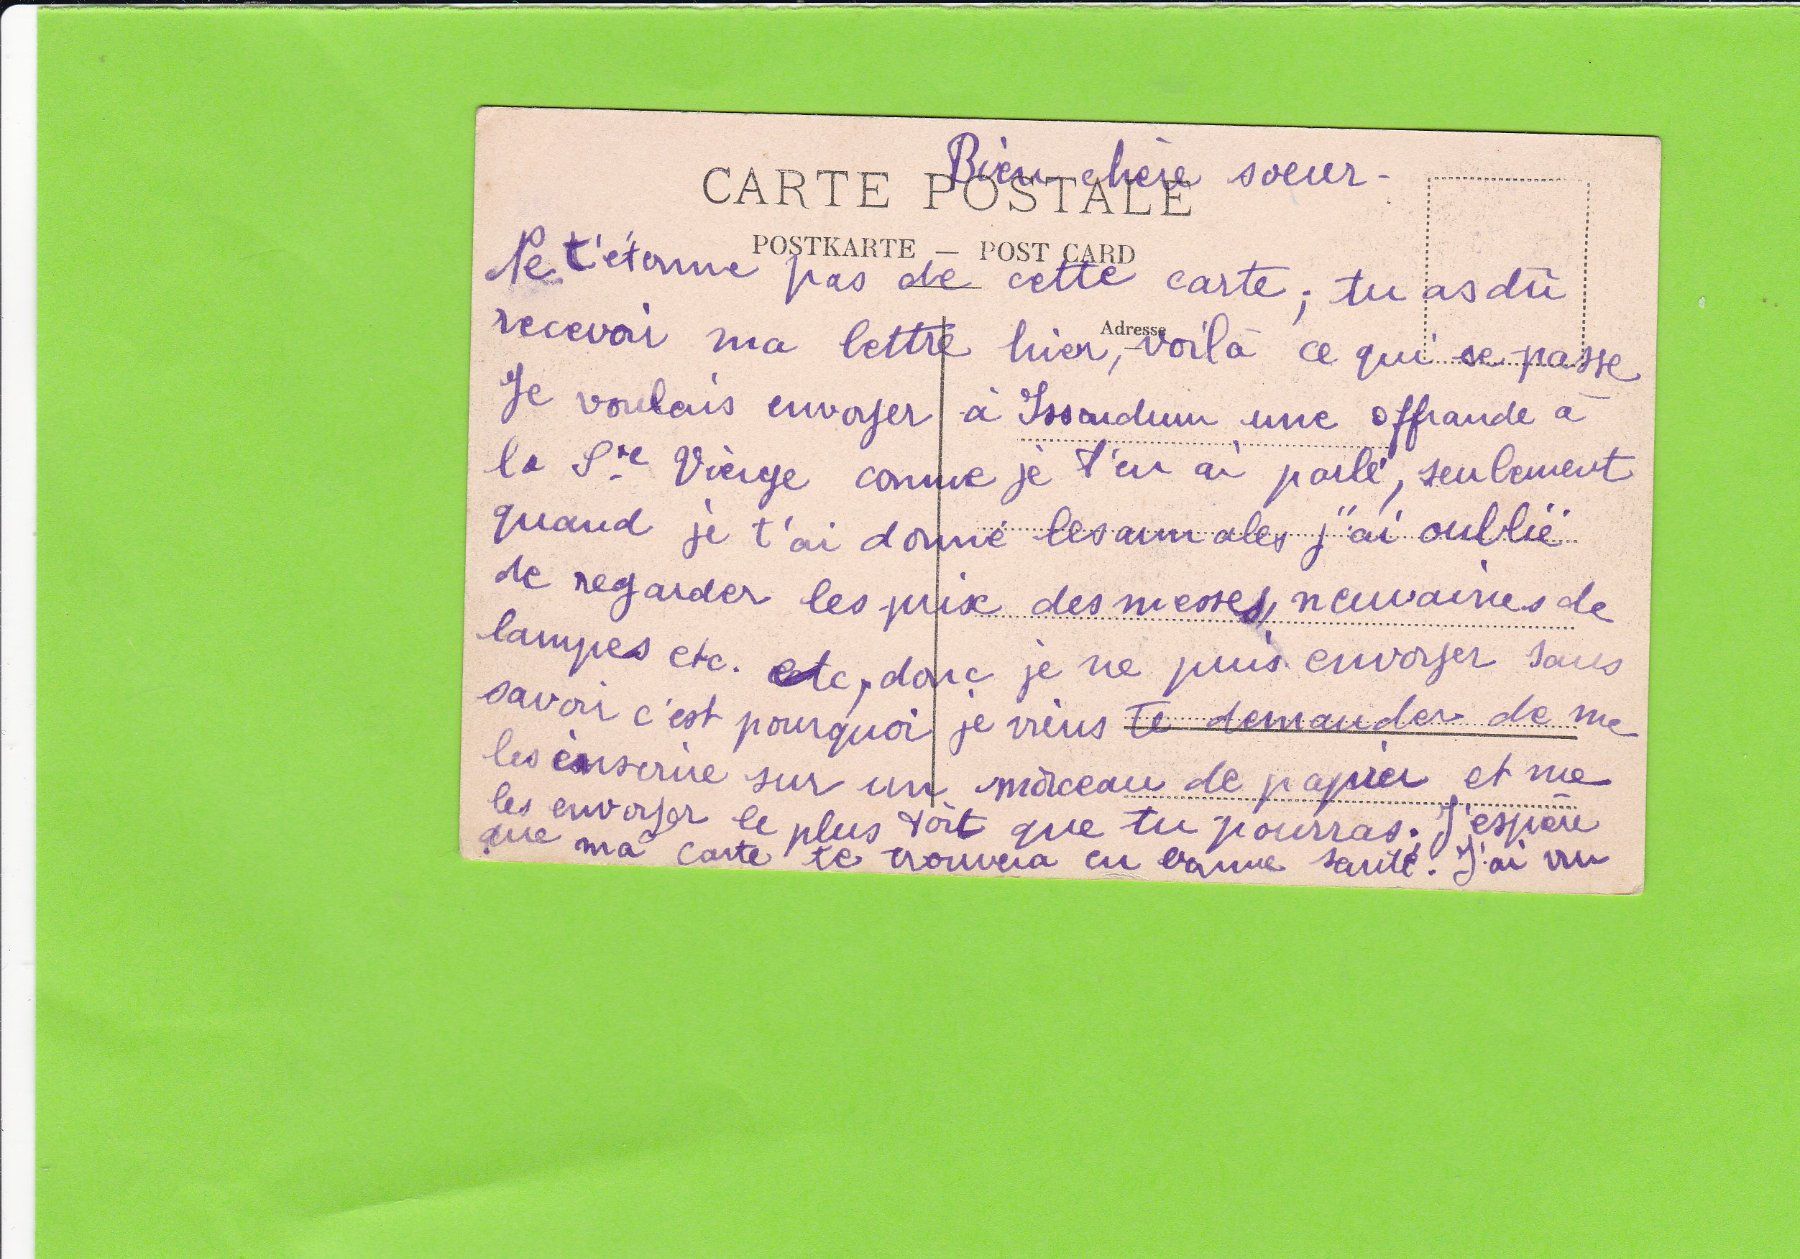 Bien chère soeur-
CARTE POSTALE
POSTKARTE — POST CARD
Ne t'étonne pas de cette carte; tu as dû
Adresse
recevoir ma lettre hier, voilà ce qui se passe
Je voulais envoyer à Issoudum une offrande à
la Ste Vierge comme je t'en ai parlé, seulement
quand je t'ai donné les annales j'ai oublié
de regarder les prix des messes, neuvaines de
lampes etc. etc, donc je ne puis envoyer sans
savoir c'est pourquoi je viens te demander de me
les inscrire sur un morceau de papier et me
les envoyer le plus tôt que tu pourras. J'espère
que ma carte te trouvera en bonne santé. J'ai vu